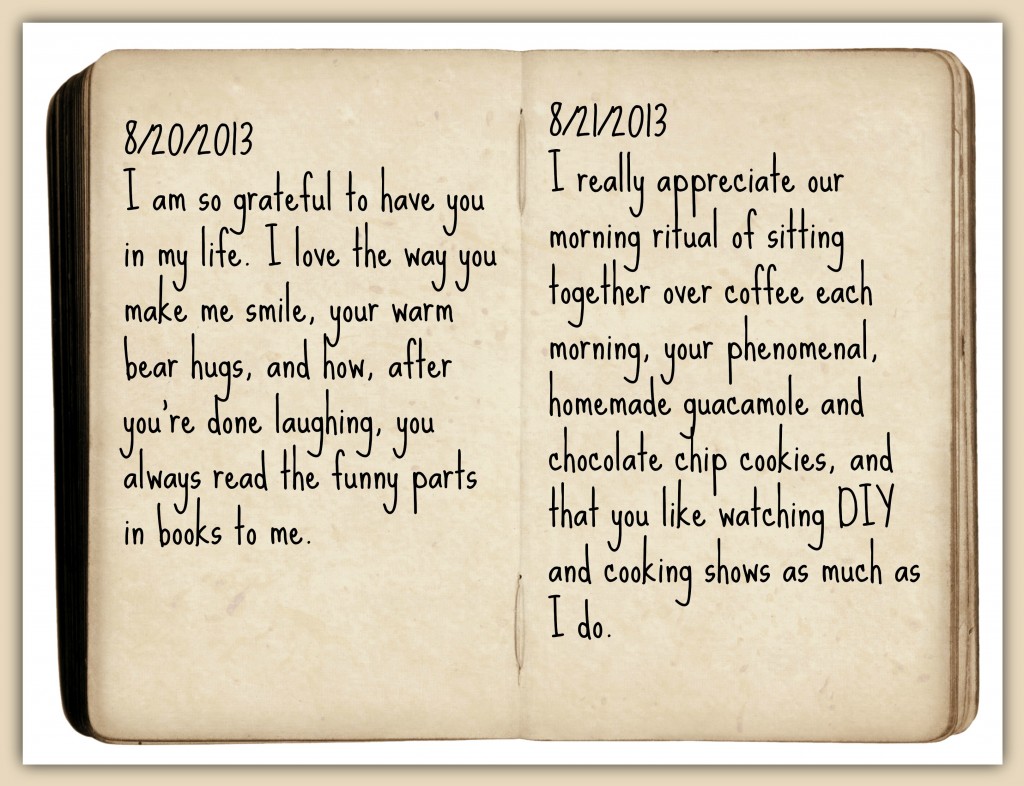 8/20/2013
I am so grateful to have you
in my life. I love the way you
make me smile, your warm
bear hugs, and how, after
you're done laughing, you
always read the funny parts
in books to me.
8/21/2013
I really appreciate our
morning ritual of sitting
together over coffee each
morning, your phenomenal,
homemade guacamole and
chocolate chip cookies, and
that you like watching DIY
and cooking shows as much as
I do.